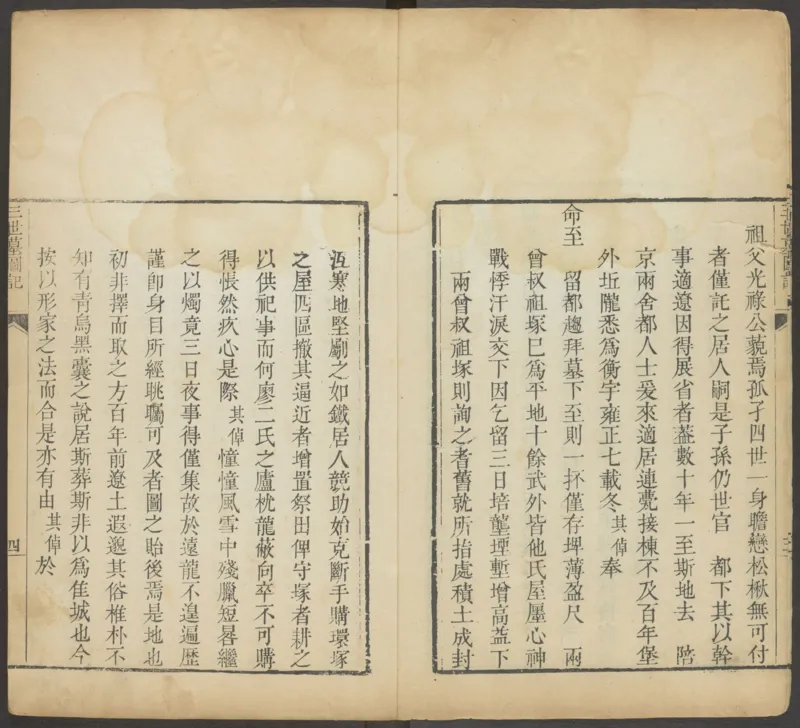 祖父光祿公藐焉孤孑四世一身瞻戀松楸無可付
者僅託之居人嗣是子孫仍世官 都下其以幹
事適遼因得展省者葢數十年一至斯地去 陪
京兩舍都人士爰來適居連甍接棟不及百年堡
外坵隴悉爲衡宇雍正七載冬其倬奉
命至 留都趨拜墓下至則一抔僅存埤薄盈尺 兩
曾叔祖塚巳爲平地十餘武外皆他氏屋屋心神
戰悸汗淚交下因乞留三日培壟堙塹增高益下
兩曾叔祖塚則詢之耆舊就所指處積土成封
冱寒地堅劚之如鐵居人競助始克斷手購環塚
之屋四區撤其逼近者增置祭田俾守塚者耕之
以供祀事而何廖二氏之廬枕龍蔽向卒不可購
得悵然疚心是際其倬憧憧風雪中殘臘短晷繼
之以燭竟三日夜事得僅集故於遠龍不遑遍歷
謹卽身目所經眺矚可及者圖之貽後焉是地也
初非擇而取之方百年前遼土遐邈其俗椎朴不
知有青烏黑囊之說居斯葬斯非以爲佳城也今
按以形家之法而合是亦有由其倬於
三世墓圖記
四